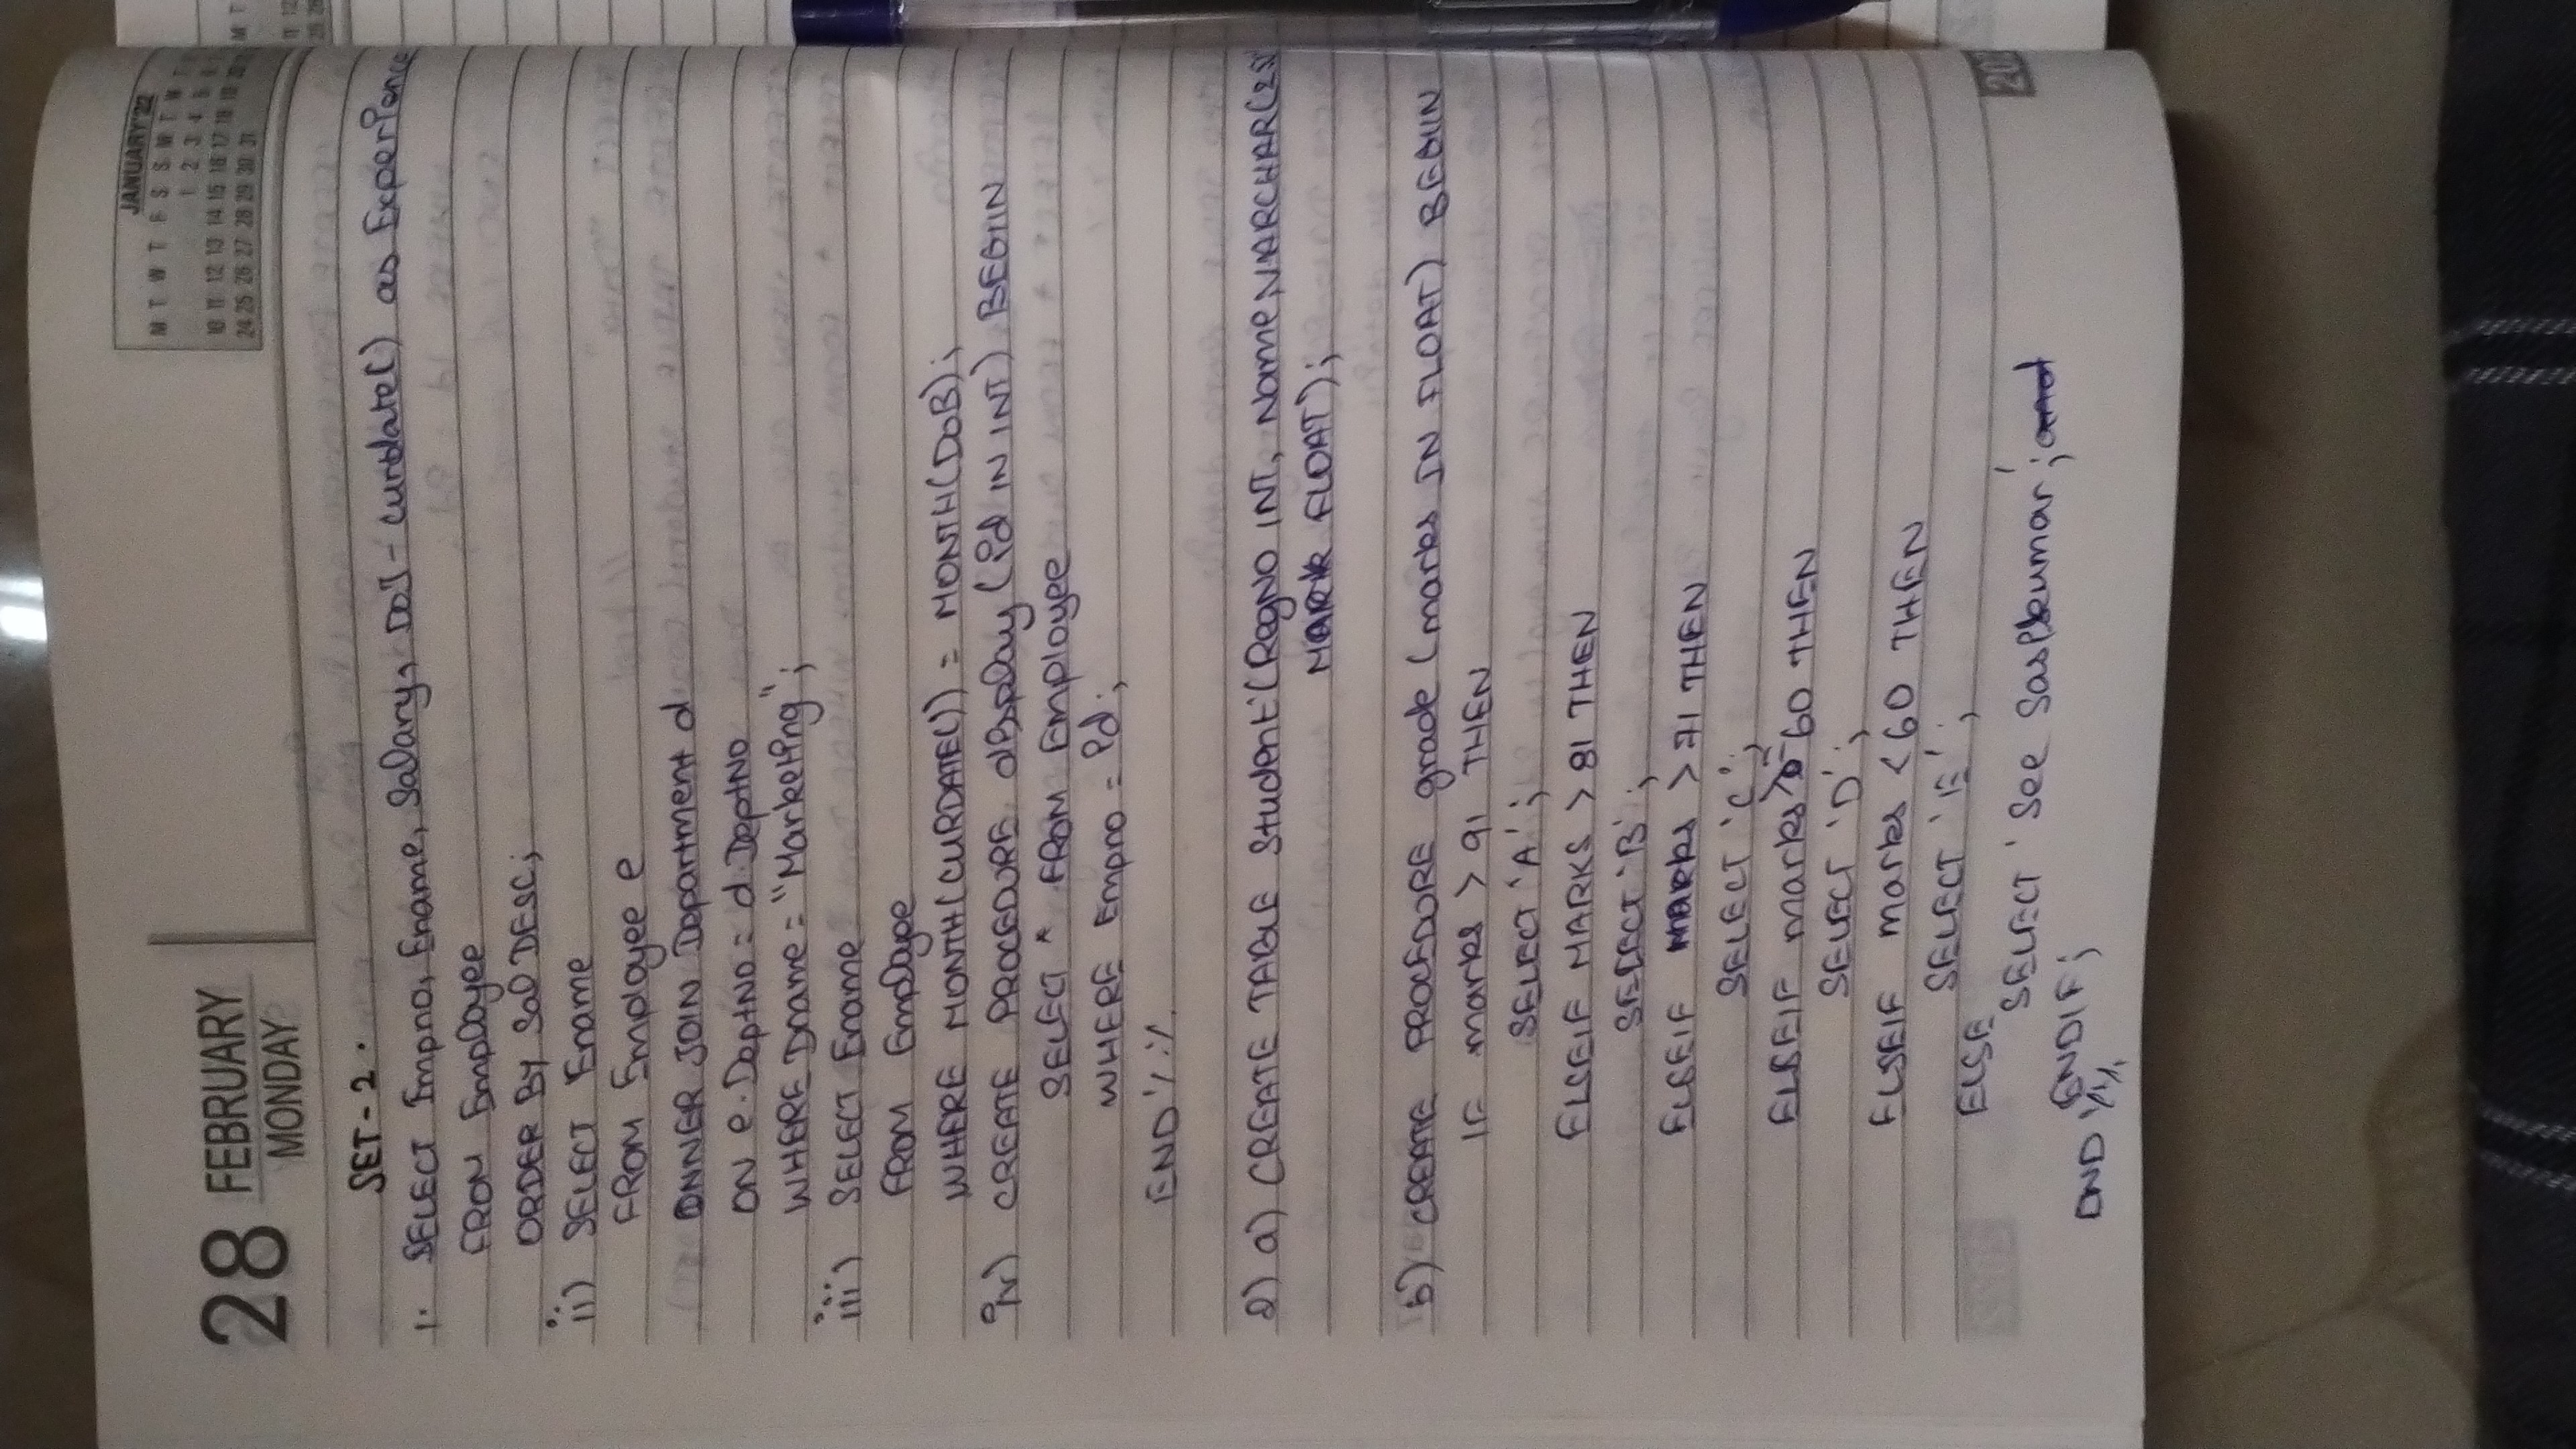 28 FEBRUARY
MONDAY
JANUARY'22
M T W T F S S M T W T
1 2 3 4 5 6
10 11 12 13 14 15 16 17 18 19 20
24 25 26 27 28 29 30 31
SET - 2 .
i. SELECT Empno, Ename, Salary, DOJ - curdate() as Experience
FROM Employee
ORDER BY Sal DESC;
ii) SELECT Ename
FROM Employee e
INNER JOIN Department d
ON e.DeptNo = d.DeptNo
WHERE Dname = "Marketing";
iii) SELECT Ename
FROM Employee
WHERE MONTH(CURDATE()) = MONTH(DOB);
iv) CREATE PROCEDURE display (id IN INT) BEGIN
SELECT * FROM Employee
WHERE Empno = id;
END %%
2) a) CREATE TABLE Student (RegNo INT, Name VARCHAR(25)
MARK FLOAT);
b) CREATE PROCEDURE grade (marks IN FLOAT) BEGIN
IF marks > 91 THEN
SELECT 'A';
ELSEIF MARKS > 81 THEN
SELECT 'B';
ELSEIF marks > 71 THEN
SELECT 'C';
ELSEIF marks >= 60 THEN
SELECT 'D';
ELSEIF marks < 60 THEN
SELECT 'E';
ELSE
SELECT 'See Sasikumar';
ENDIF;
END %%